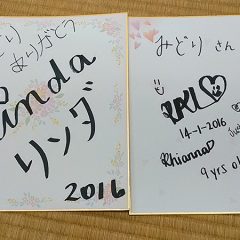 ありがとう
Linda
リンダ
2016
みどり さん
14-1-2016
Rhianna
9 yrs ol